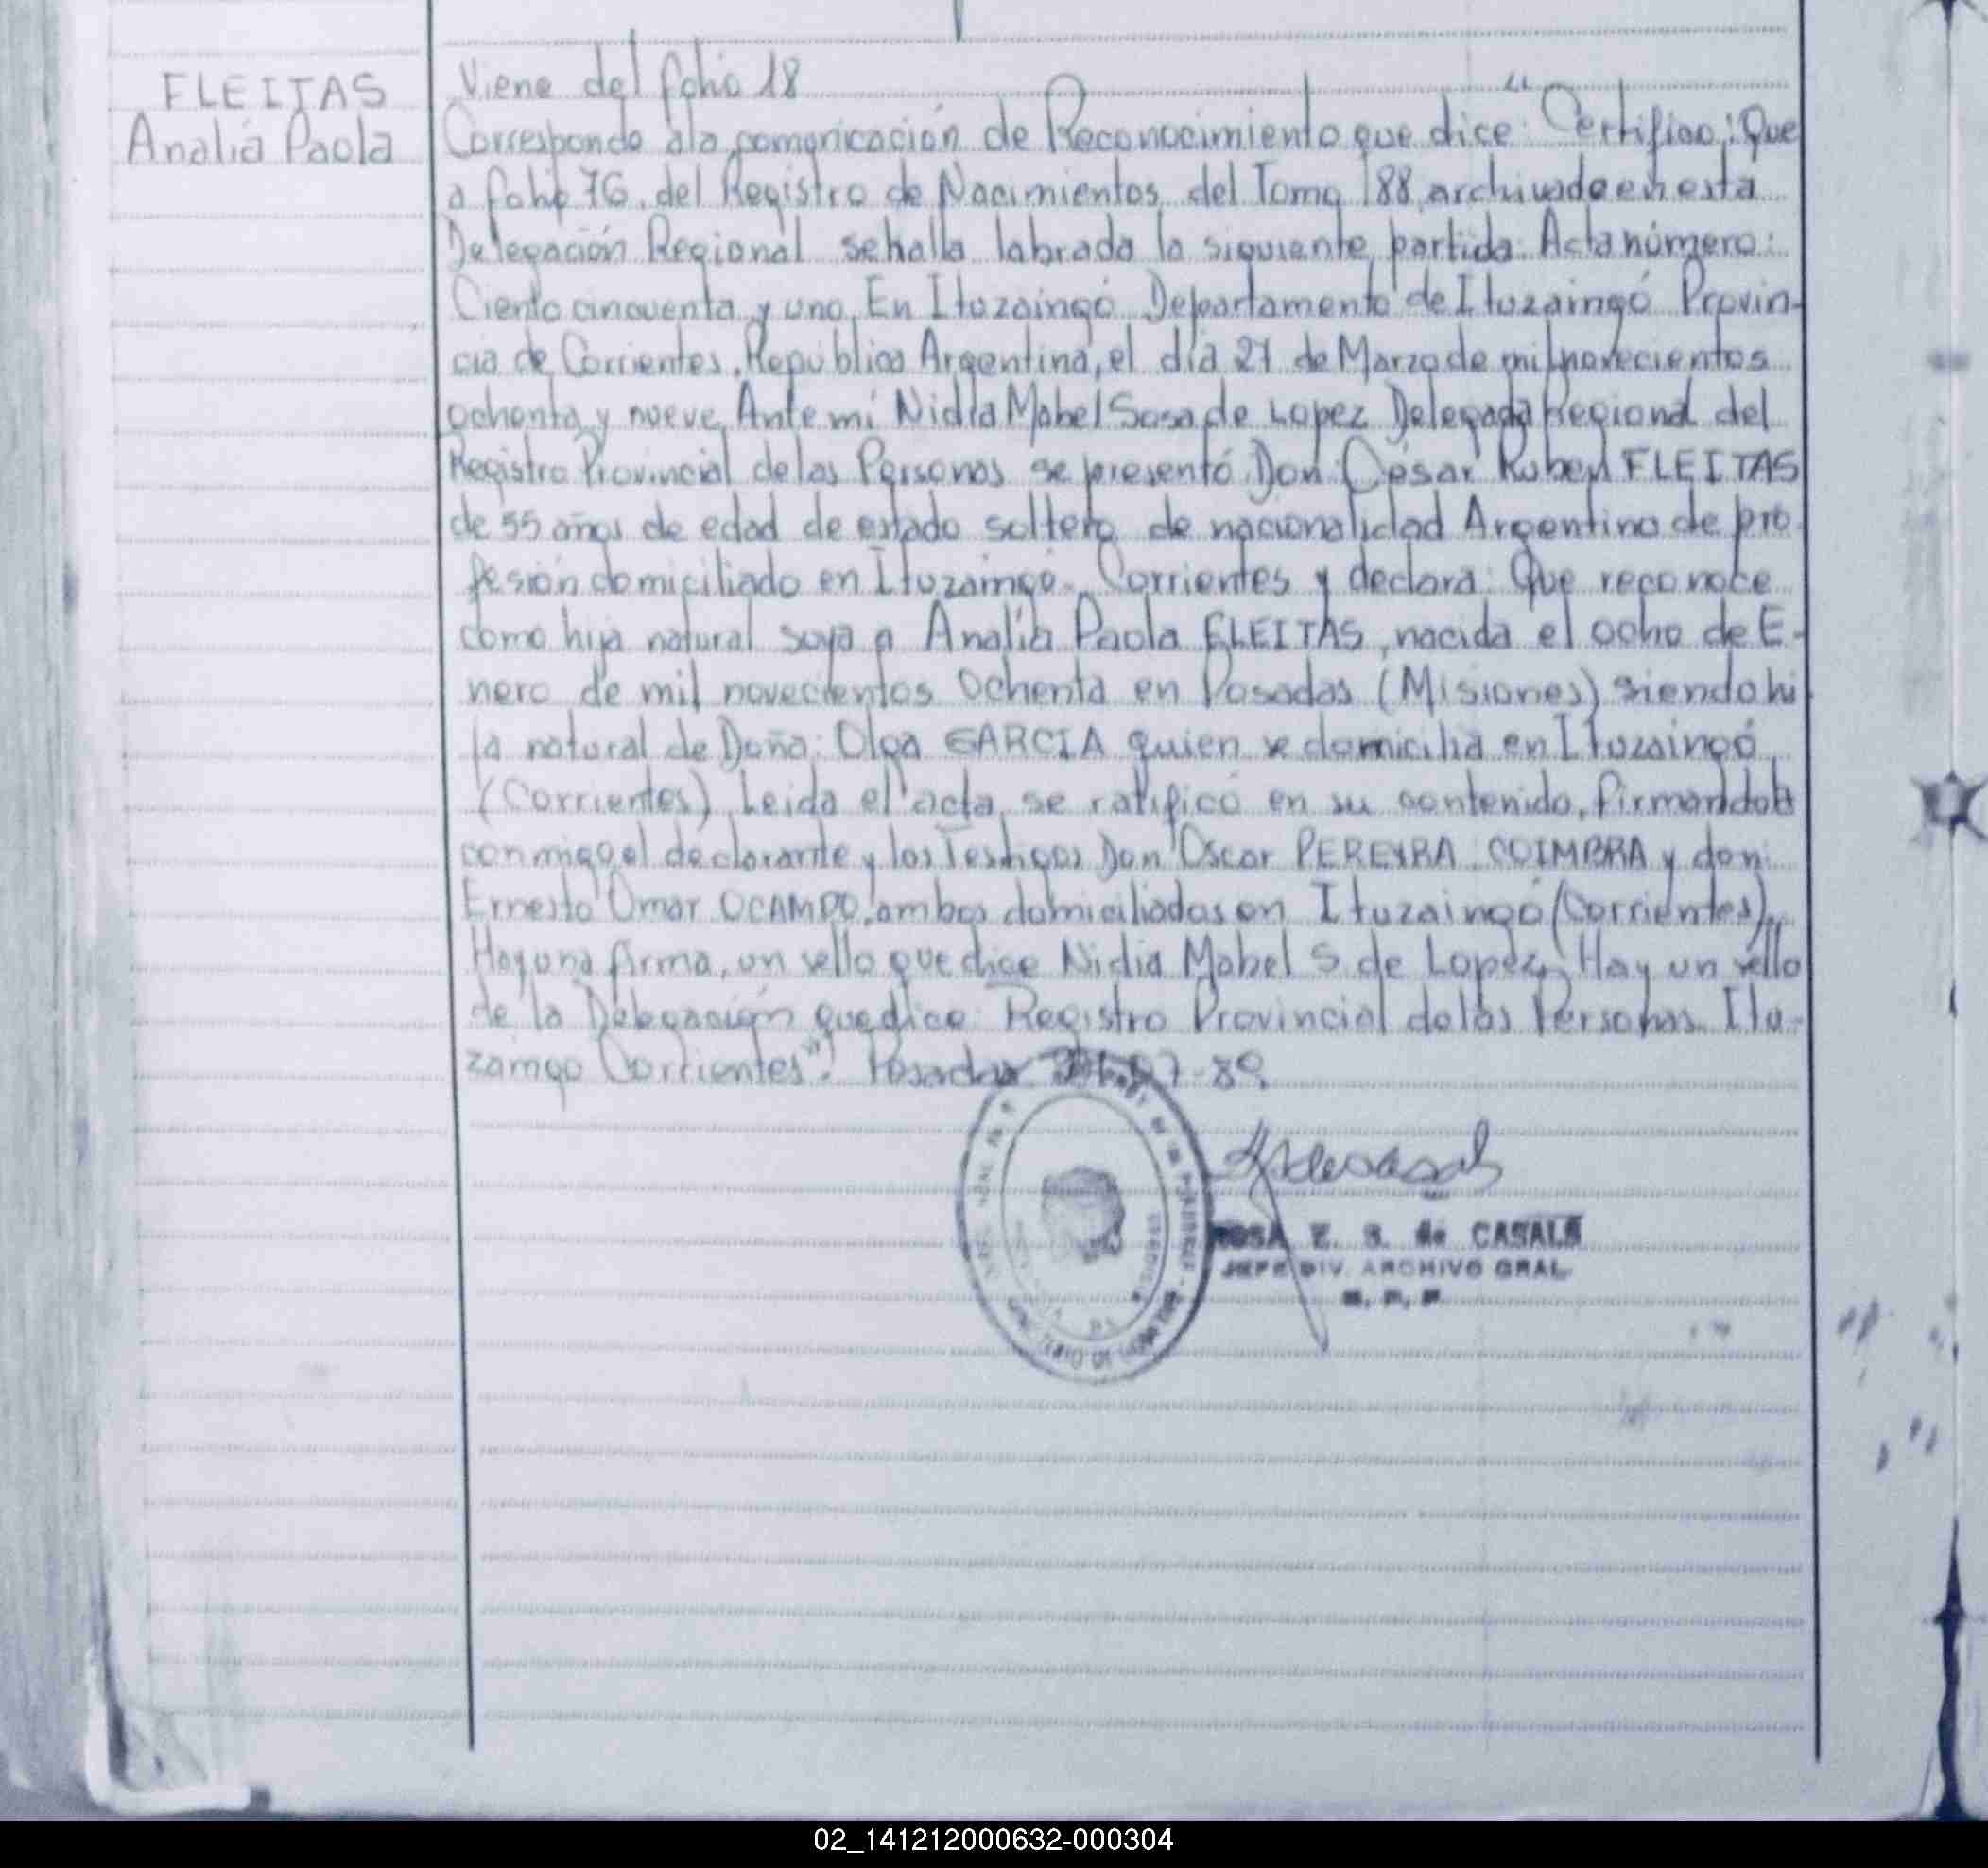 FLEITAS
Analía Paola
Viene del folio 18
Corresponde a la comunicación de Reconocimiento que dice: "Certifico: Que
a folio 76 del Registro de Nacimientos del Tomo 188 archivado en esta
Delegación Regional se halla labrada la siguiente partida: Acta número:
Ciento cincuenta y uno. En Ituzaingó Departamento de Ituzaingó Provin-
cia de Corrientes, República Argentina, el día 27 de Marzo de mil novecientos
ochenta y nueve, Ante mí Nidia Mabel Sosa de Lopez Delegada Regional del
Registro Provincial de las Personas se presentó Don: César Ruben FLEITAS
de 55 años de edad de estado soltero de nacionalidad Argentino de pro-
fesión domiciliado en Ituzaingó- Corrientes y declara: Que reconoce
como hija natural suya a Analía Paola FLEITAS, nacida el ocho de E-
nero de mil novecientos ochenta en Posadas (Misiones) siendo hi
ja natural de Doña: Olga GARCIA quien se domicilia en Ituzaingó
(Corrientes). Leida el acta se ratificó en su contenido, firmandola
conmigo el declarante y los Testigos Don Oscar PEREYRA COIMBRA y don
Ernesto Omar OCAMPO, ambos domiciliados en Ituzaingó (Corrientes).
Hay una firma, un sello que dice Nidia Mabel S. de Lopez, Hay un sello
de la Delegación que dice: Registro Provincial de las Personas. Itu-
zaingo Corrientes". Posadas 07-89
ROSA E. S. de CASALS
JEFE DIV. ARCHIVO GRAL.
02_141212000632-000304